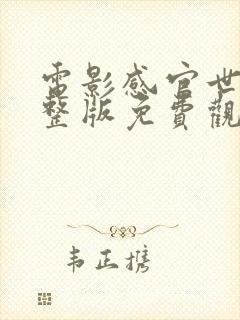 電影感官世
整版免費觀
韦正携